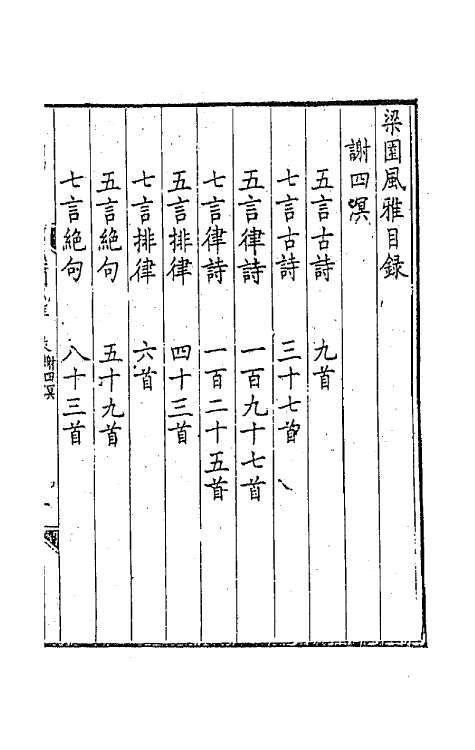 梁園風雅目録
謝四溟
五言古詩 九首
七言古詩 三十七首
五言律詩 一百九十七首
七言律詩 一百二十五首
五言排律 四十三首
七言排律 六首
五言絶句 五十九首
七言絶句 八十三首
謝四溟